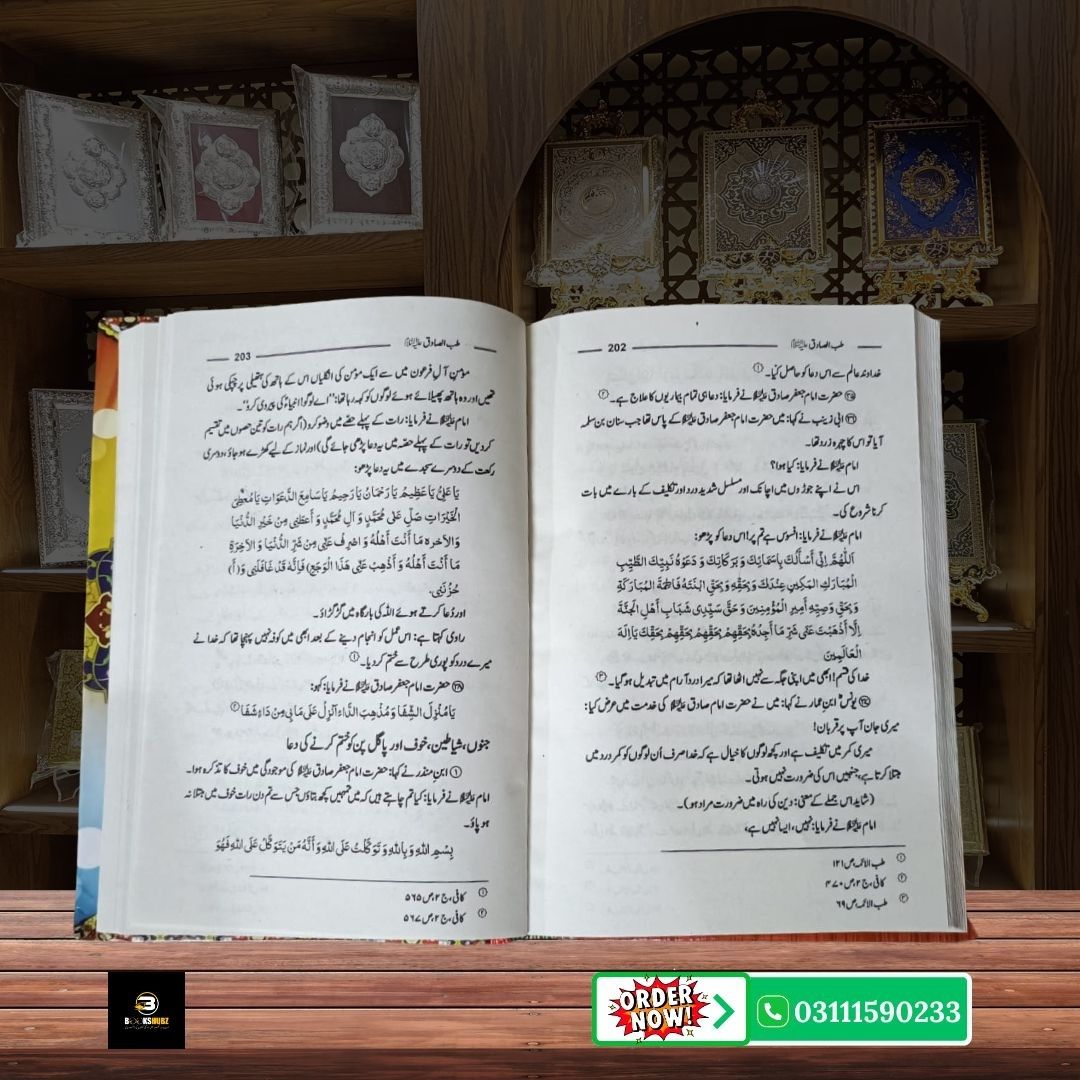 طب الصادق علیہ السلام
202
خداوند عالم سے اس دعا کو حاصل کیا۔ ①
㉕ حضرت امام جعفر صادق علیہ السلام نے فرمایا: دعا ہی تمام بیماریوں کا علاج ہے۔ ②
㉖ ابی زینب نے کہا: میں حضرت امام جعفر صادق علیہ السلام کے پاس تھا جب سنان بن سلمہ
آیا تو اس کا چہرہ زرد تھا۔
امام علیہ السلام نے فرمایا: کیا ہوا؟
اس نے اپنے جوڑوں میں اچانک اور مسلسل شدید درد اور تکلیف کے بارے میں بات
کرنا شروع کی۔
امام علیہ السلام نے فرمایا: افسوس ہے تم پر! اس دعا کو پڑھو:
اَللّٰهُمَّ اِنِّی أَسْأَلُكَ بِاَسْمَائِكَ وَ بَرَكَاتِكَ وَ دَعْوَةِ نَبِیِّكَ الطَّیِّبِ
الْمُبَارَكِ الْمَكِیْنِ عِنْدَكَ وَ بِحَقِّهٖ وَ بِحَقِّ ابْنَتِهٖ فَاطِمَةَ الْمُبَارَكَةِ
وَ بِحَقِّ وَصِیِّهٖ أَمِیْرِ الْمُؤْمِنِیْنَ وَ حَقِّ سَیِّدَیْ شَبَابِ أَهْلِ الْجَنَّةِ
اِلَّا أَذْهَبْتَ عَنِّی شَرَّ مَا أَجِدُهُ بِحَقِّهِمْ بِحَقِّهِمْ بِحَقِّهِمْ بِحَقِّكَ یَا اِلٰهَ
الْعَالَمِیْنَ
خدا کی قسم! ابھی میں اپنی جگہ سے نہیں اٹھا تھا کہ میرا درد آرام میں تبدیل ہو گیا۔ ③
㉗ یونس ابن عمار نے کہا: میں نے حضرت امام صادق علیہ السلام کی خدمت میں عرض کیا:
میری جان آپ پر قربان!
میری کمر میں تکلیف ہے اور کچھ لوگوں کا خیال ہے کہ خدا صرف اُن لوگوں کو کمر درد میں
مبتلا کرتا ہے، جنہیں اس کی ضرورت نہیں ہوتی۔
(شاید اس جملے کے معنی: دین کی راہ میں ضرورت مراد ہو)۔
امام علیہ السلام نے فرمایا: نہیں، ایسا نہیں ہے،
① طب الائمہ ص ۱۲۱
② کافی، ج ۲، ص ۴۷۰
③ طب الائمہ ص ۶۹
طب الصادق علیہ السلام
203
مؤمن آلِ فرعون میں سے ایک مؤمن کی انگلیاں اس کے ہاتھ کی ہتھیلی پر چپکی ہوئی
تھیں اور وہ ہاتھ پھیلائے ہوئے لوگوں کو کہہ رہا تھا: "اے لوگو! انبیاءؑ کی پیروی کرو"۔
امام علیہ السلام نے فرمایا: رات کے پہلے حصّے میں وضو کرو (اگر ہم رات کو تین حصوں میں تقسیم
کر دیں تو رات کے پہلے حصّہ میں یہ دعا پڑھی جائے گی) اور نماز کے لیے کھڑے ہو جاؤ، دوسری
رکعت کے دوسرے سجدے میں یہ دعا پڑھو:
یَا عَلِیُّ یَا عَظِیْمُ یَا رَحْمَانُ یَا رَحِیْمُ یَا سَامِعَ الدَّعَوَاتِ یَا مُعْطِیَ
الْخَیْرَاتِ صَلِّ عَلٰی مُحَمَّدٍ وَ آلِ مُحَمَّدٍ وَ أَعْطِنِی مِنْ خَیْرِ الدُّنْیَا
وَ الآخرہ مَا أَنْتَ أَهْلُهُ وَ اصْرِفْ عَنِّی مِنْ شَرِّ الدُّنْیَا وَ الْآخِرَةِ
مَا أَنْتَ أَهْلُهُ وَ أَذْهِبْ عَنِّی هٰذَا الْوَجَعَ (فَاِنَّهُ قَدْ غَاظَنِی وَ (أ)
حُزْنَنِی.
اور دُعا کرتے ہوئے اللہ کی بارگاہ میں گڑگڑاؤ۔
راوی کہتا ہے: اس عمل کو انجام دینے کے بعد ابھی میں کوفہ نہیں پہنچا تھا کہ خدا نے
میرے درد کو پوری طرح سے ختم کر دیا۔ ①
㉘ حضرت امام جعفر صادق علیہ السلام نے فرمایا: کہو:
یَا مُنْزِلَ الشِّفَا وَ مُذْهِبَ الدَّاءِ اَنْزِلْ عَلٰی مَا بِی مِنْ دَاءٍ شَفَا ②
جنوں، شیاطین، خوف اور پاگل پن کو ختم کرنے کی دعا
① ابن منذر نے کہا: حضرت امام جعفر صادق علیہ السلام کی موجودگی میں خوف کا تذکرہ ہوا۔
امام علیہ السلام نے فرمایا: کیا تم چاہتے ہیں کہ میں تمہیں کچھ بتاؤں جس سے تم دن رات خوف میں مبتلا نہ
ہو پاؤ۔
بِسْمِ اللهِ وَ بِاللهِ وَ تَوَكَّلْتُ عَلَی اللهِ وَ أَنَّهُ مَنْ یَتَوَكَّلْ عَلَی اللهِ فَهُوَ
① کافی، ج ۲، ص ۵۶۵
② کافی، ج ۲، ص ۵۶۷
BOOKSHUBZ
ORDER
NOW!
03111590233